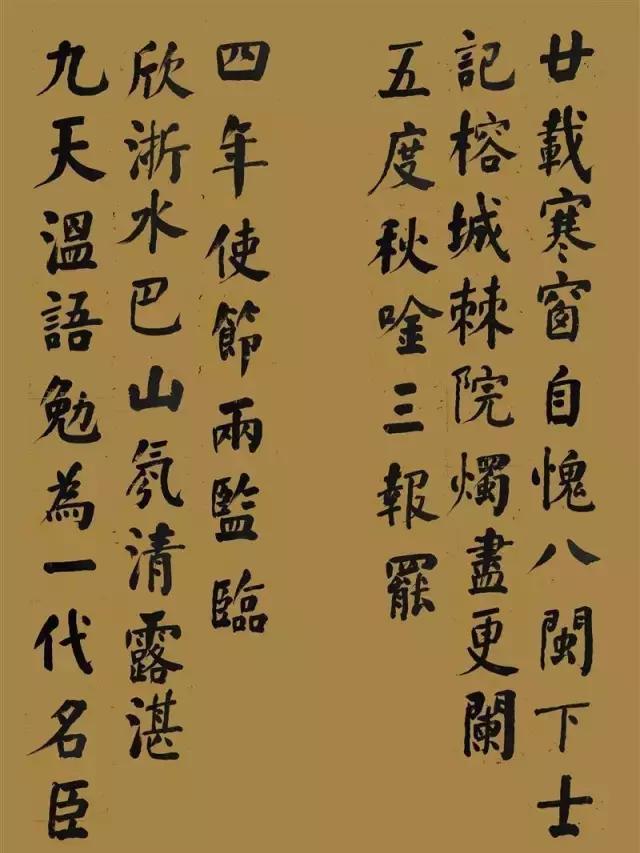 廿載寒窗自愧八閩下士
記榕城棘院燭盡更闌
五度秋唫三報罷
九天溫語勉為一代名臣
欣浙水巴山氛清露湛
四年使節兩監臨